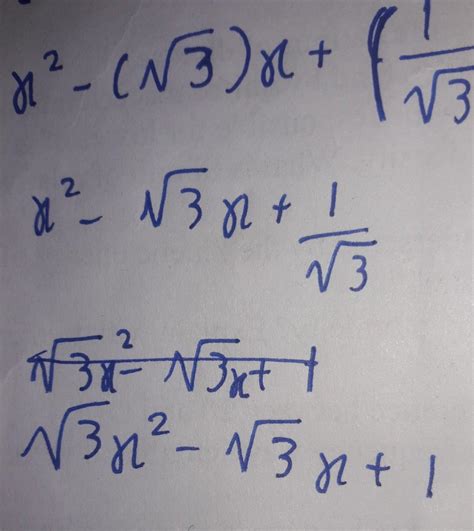 x² - (√3)x + (1/√3
x² - √3x + 1/√3
√3x² - √3x + 1
√3x² - √3x + 1